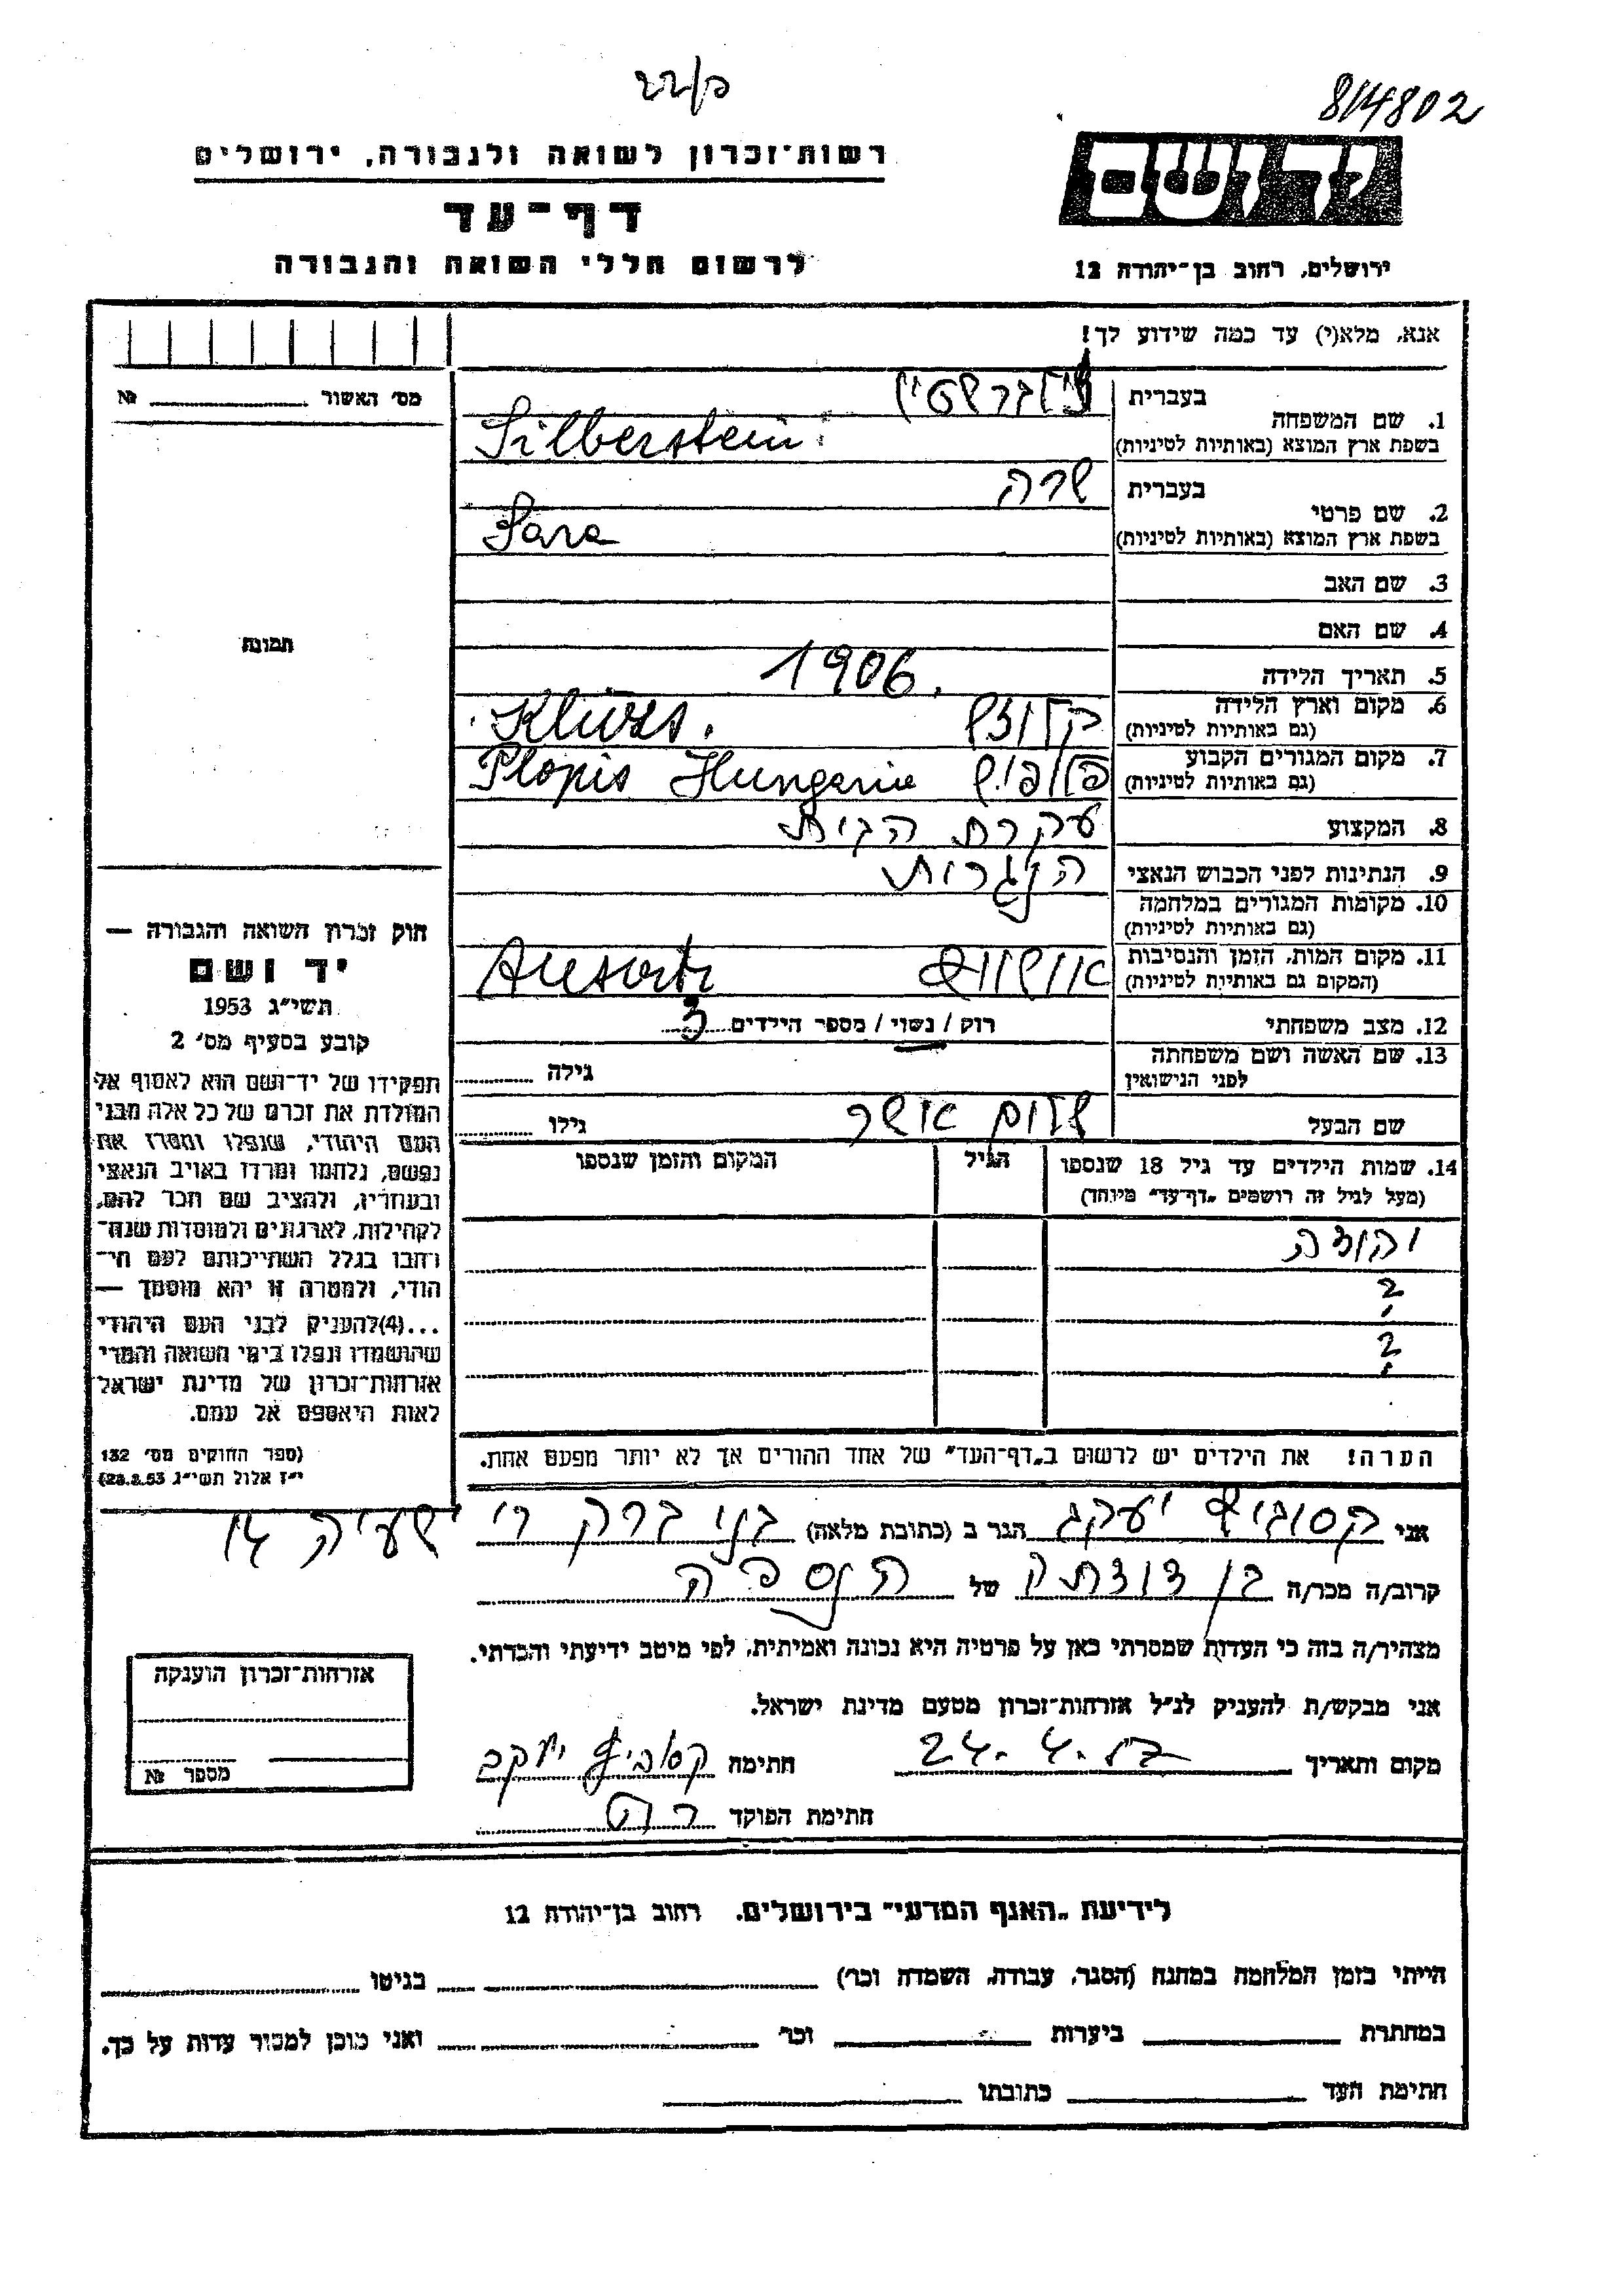 814802
רשות־זכרון לשואה ולגבורה, ירושלים
דף־עד
לרשום חללי השואה והגבורה
יד ושם
ירושלים, רחוב בן־יהודה 12
אנא, מלא(י) עד כמה שידוע לך!
מס׳ האשור № 
1. שם המשפחה
בעברית
זילברשטיין
בשפת ארץ המוצא (באותיות לטיניות)
Silberstein
2. שם פרטי
בעברית
שרה
בשפת ארץ המוצא (באותיות לטיניות)
Sara
3. שם האב
4. שם האם
5. תאריך הלידה
1906
6. מקום וארץ הלידה
(גם באותיות לטיניות)
קלוזש
7. מקום המגורים הקבוע
(גם באותיות לטיניות)
פלופיש Plopis Hungaria
8. המקצוע
עקרת הבית
9. הנתינות לפני הכבוש הנאצי
הונגרית
10. מקומות המגורים במלחמה
(גם באותיות לטיניות)
11. מקום המות, הזמן והנסיבות
(המקום גם באותיות לטיניות)
אושוויץ
12. מצב משפחתי
רוק / נשוי / מספר הילדים 3
13. שם האשה ושם משפחתה
לפני הנישואין
גילה
שם הבעל
שלום אשר
גילו
14. שמות הילדים עד גיל 18 שנספו
(מעל לגיל זה רושמים „דף־עד״ מיוחד)
הגיל
המקום והזמן שנספו
יהודה
?
?
הערה! את הילדים יש לרשום ב„דף־העד״ של אחד ההורים אך לא יותר מפעם אחת.
תמונה
חוק זכרון השואה והגבורה —
יד ושם
תשי״ג 1953
קובע בסעיף מס׳ 2
תפקידו של יד־ושם הוא לאסוף אל
המולדת את זכרם של כל אלה מבני
העם היהודי, שנפלו ומסרו את
נפשם, נלחמו ומרדו באויב הנאצי
ובעוזריו, ולהציב שם וזכר להם,
לקהילות, לארגונים ולמוסדות שנח־
רבו בגלל השתייכותם לעם הי־
הודי, ולמטרה זו יהא מוסמך —
...(4) להעניק לבני העם היהודי
שהושמדו ונפלו בימי השואה והמרי
אזרחות־זכרון של מדינת ישראל
לאות היאספם אל עמם.
(ספר החוקים מס׳ 132
י״ז אלול תשי״ג 28.8.53)
אני יעקב הגר ב (כתובת מלאה) בני ברק רי ישעיה 14
קרוב/ה מכר/ה בן דודתה של הנספה
מצהיר/ה בזה כי העדות שמסרתי כאן על פרטיה היא נכונה ואמיתית, לפי מיטב ידיעתי והכרתי.
אני מבקש/ת להעניק לנ״ל אזרחות־זכרון מטעם מדינת ישראל.
מקום ותאריך 24.4. חתימה יעקב
חתימת הפוקד
אזרחות־זכרון הוענקה
מספר №
לידיעת „האגף המדעי״ בירושלים. רחוב בן־יהודה 12
הייתי בזמן המלחמה במחנה (הסגר, עבודה, השמדה וכר׳) בגיטו
במחתרת ביערות וכר׳ ואני מוכן למסור עדות על כך.
חתימת העד כתובתו